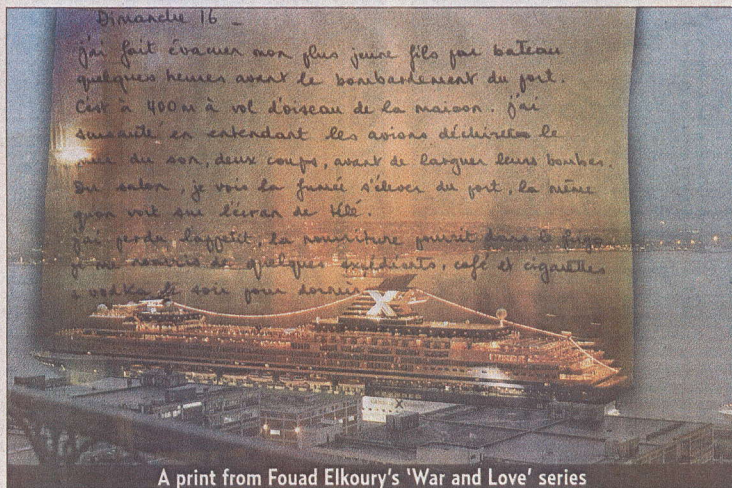 Dimanche 16 –
j'ai fait évacuer mon plus jeune fils par bateau
quelques heures avant le bombardement du port.
C'est à 400 m à vol d'oiseau de la maison. j'ai
sursauté en entendant les avions déchirer le
mur du son, deux coups, avant de larguer leurs bombes.
Du salon, je vois la fumée s'élever du port, la même
qu'on voit sur l'écran de télé.
j'ai perdu l'appétit, la nourriture pourrit dans le frigo
je me nourris de quelques expédients, café et cigarettes
vodka le soir pour dormir
X
X
A print from Fouad Elkoury's 'War and Love' series